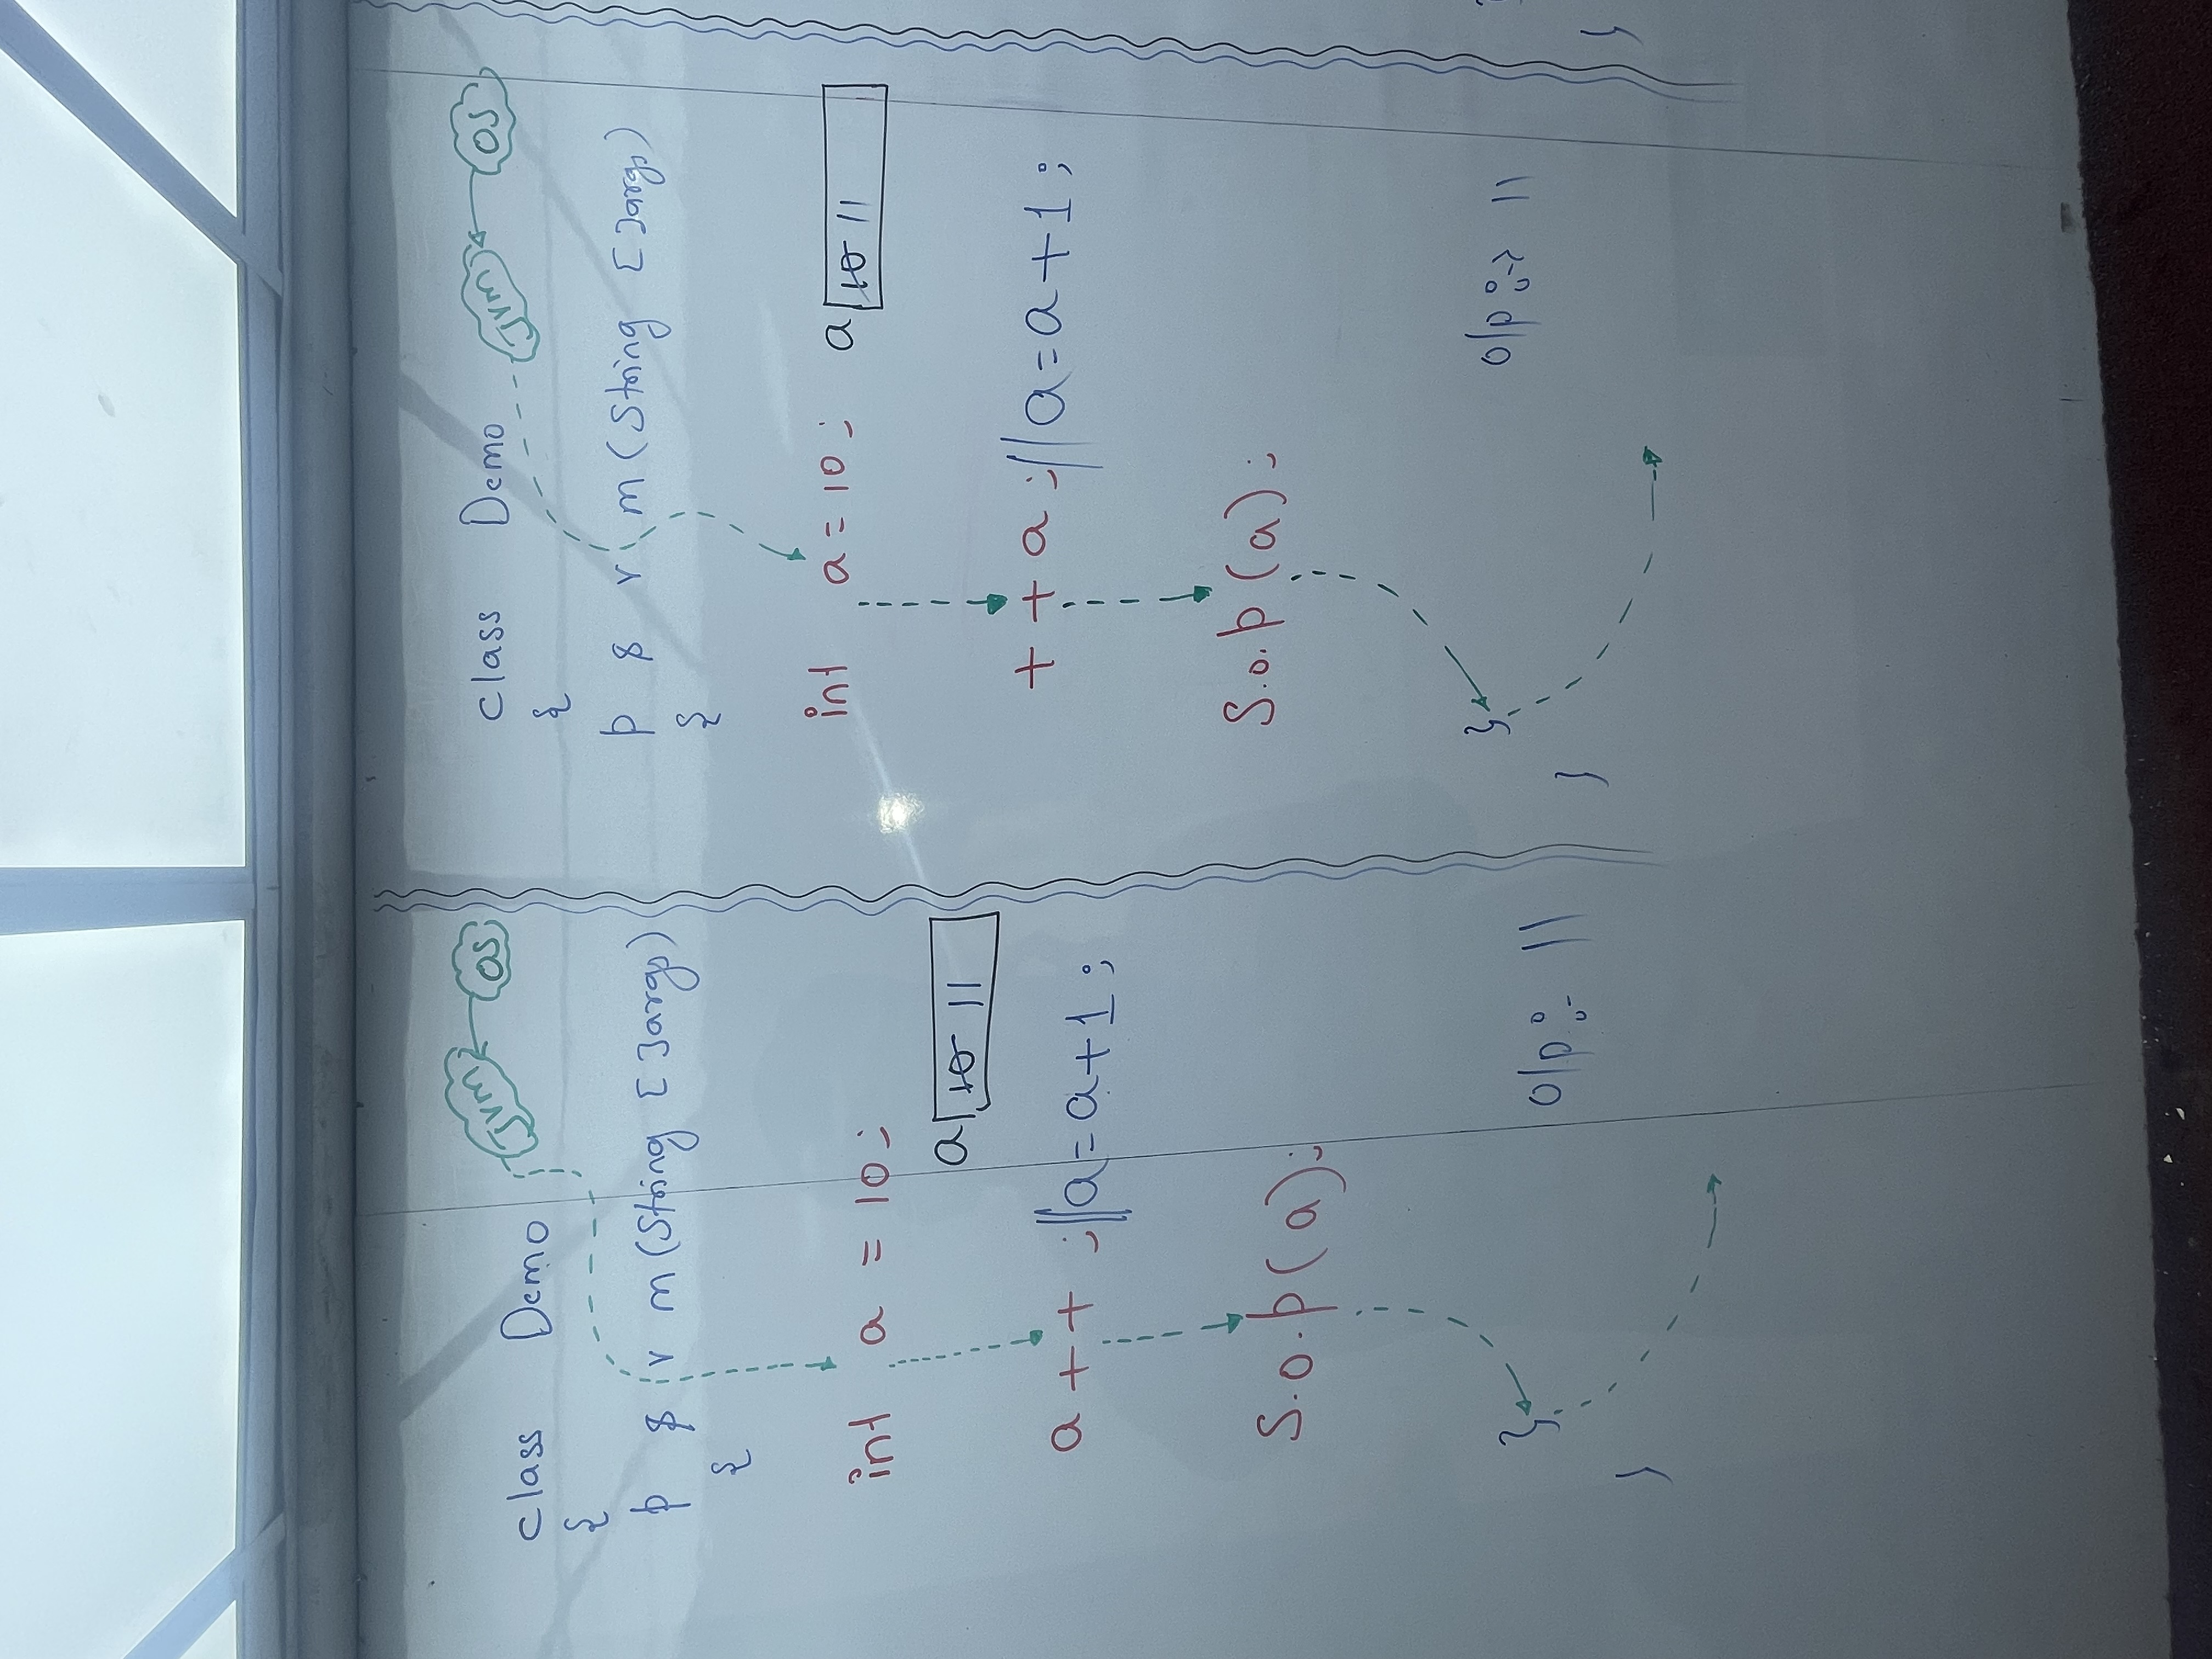 class Demo JVM OS
{
p s v m(String [ ]args)
{
int a = 10;
a 10 11
a + + ;//a=a+1;
S.o.p(a);
}
o/p :- 11
}
class Demo JVM OS
{
p s v m(String [ ]args)
{
int a=10; a 10 11
+ + a ;//a=a+1;
S.o.p(a);
}
o/p :-> 11
}
}